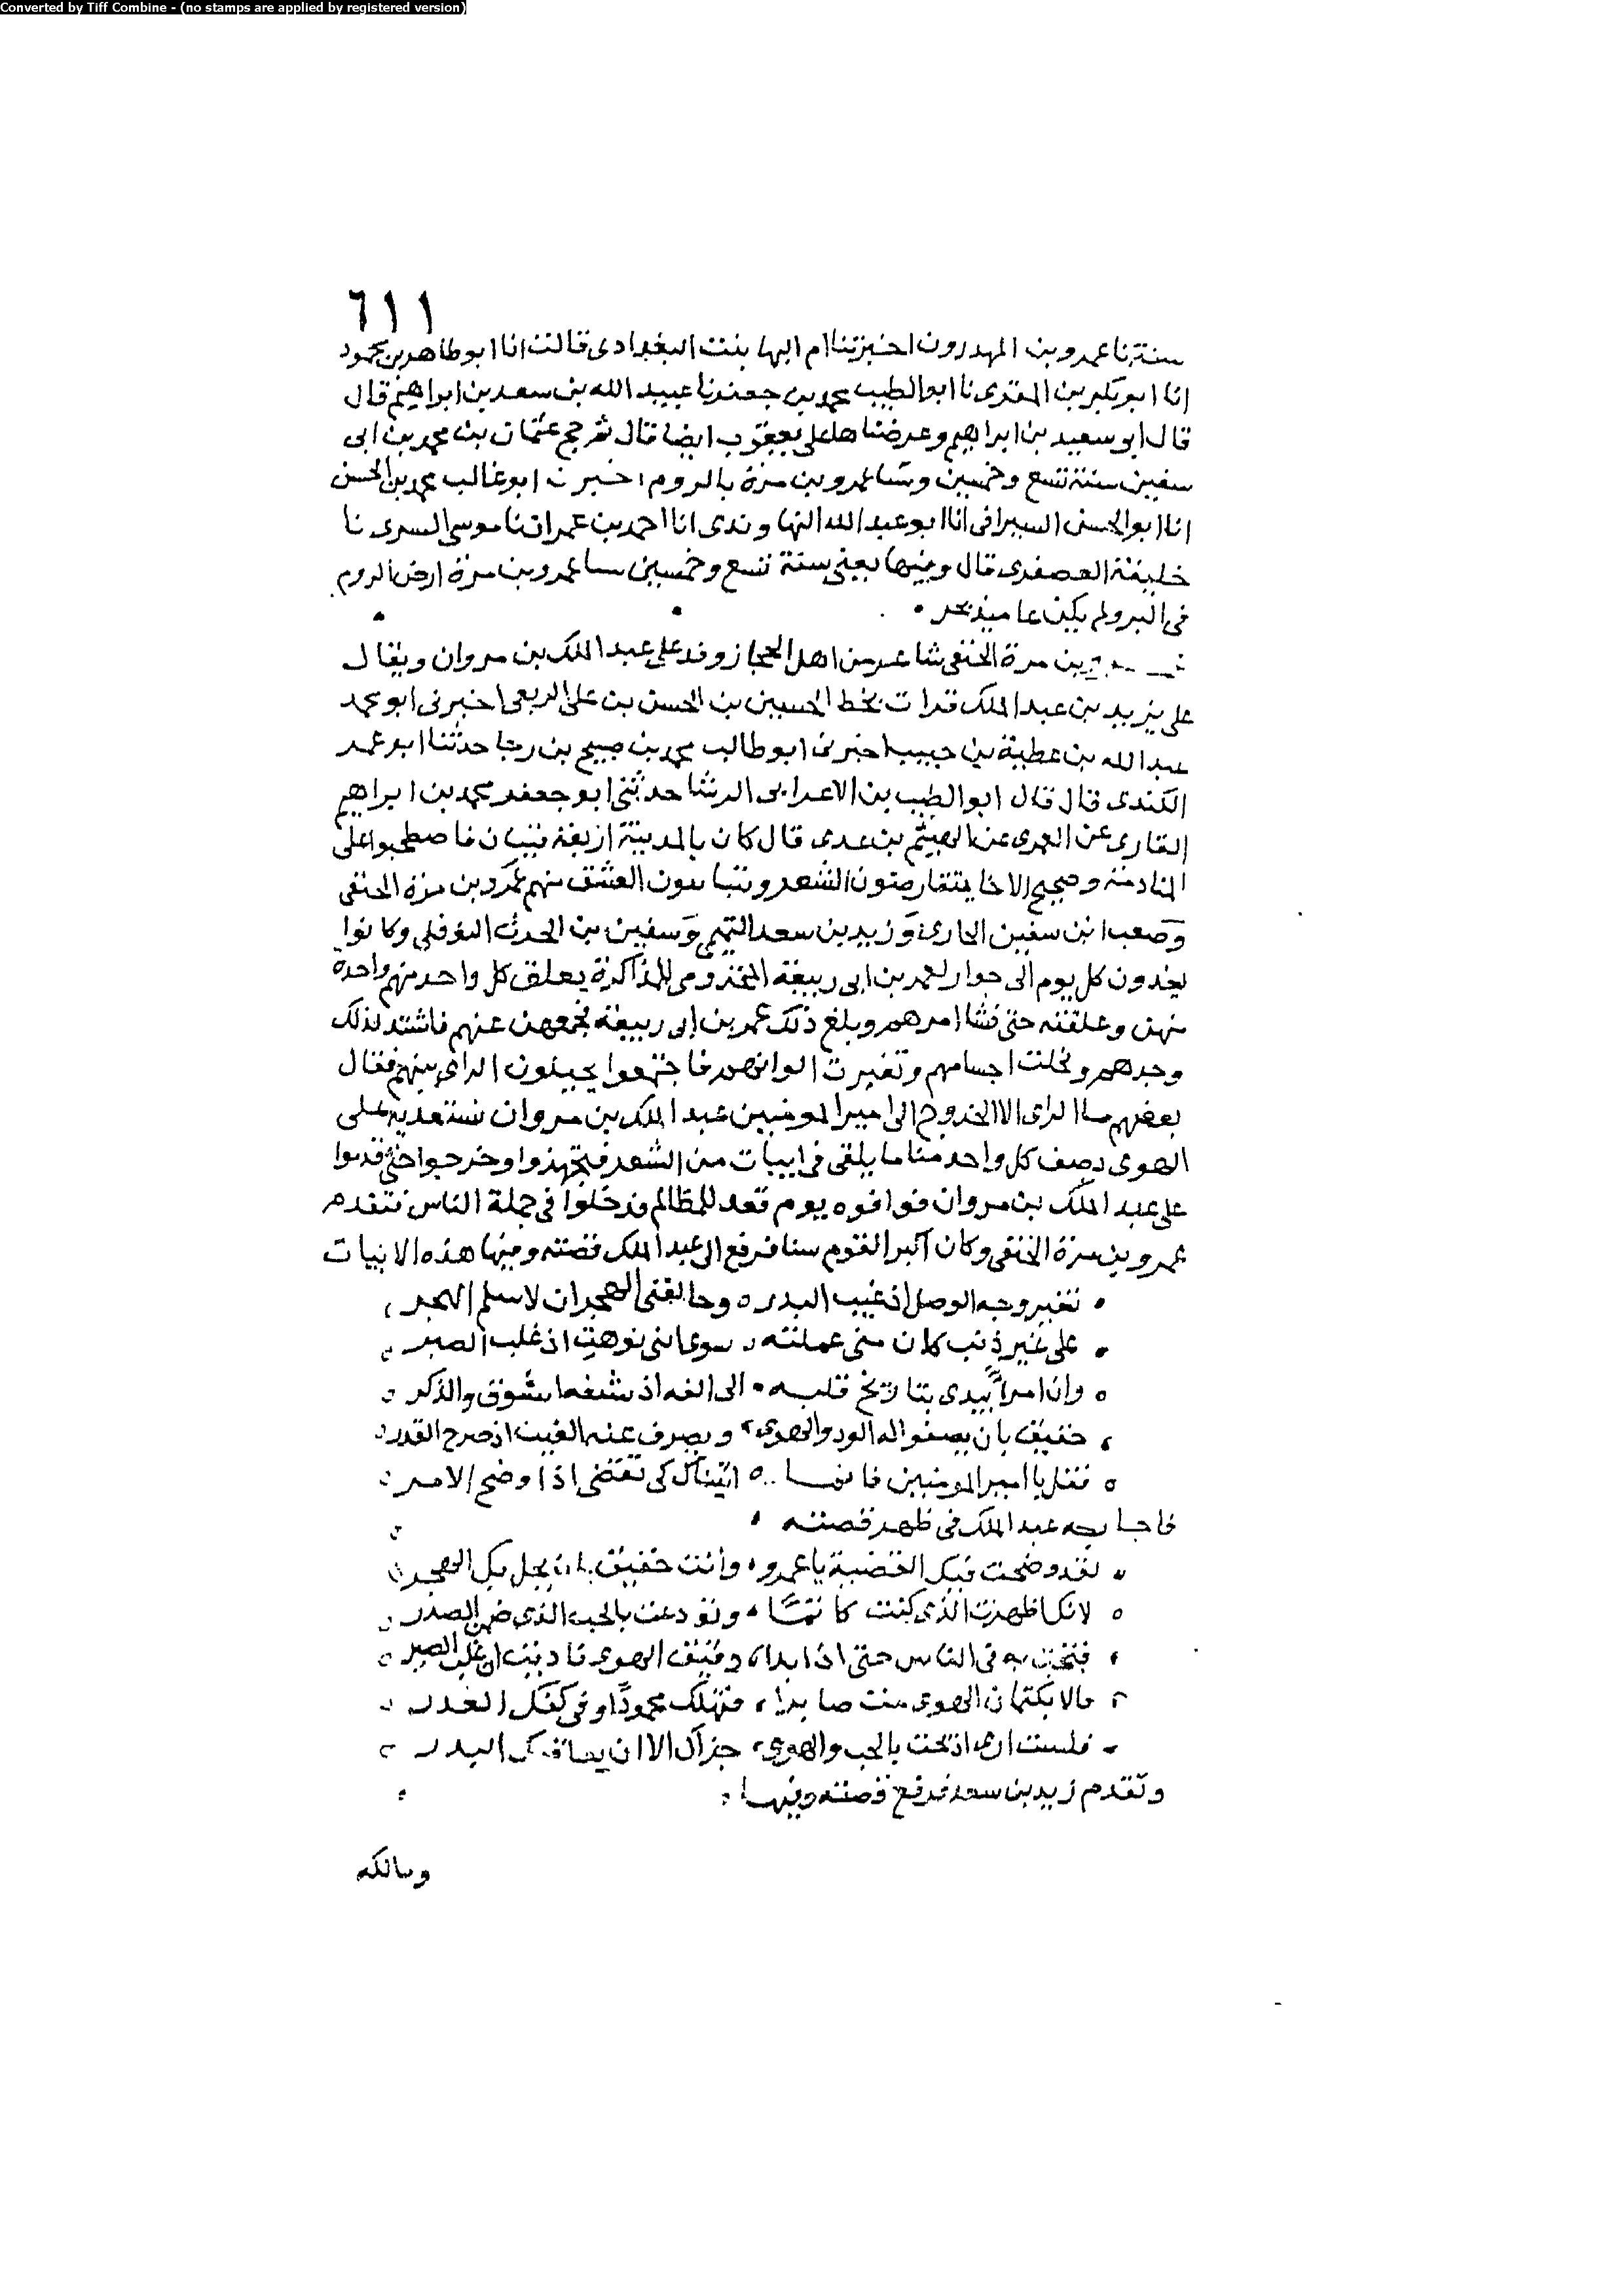 Converted by Tiff Combine - (no stamps are applied by registered version)
٦١١
سنة نا عمرو بن المهدرون اخبرتنا ام البها بنت البغدادى قالت انا ابو طاهر بن محمود
انا ابو بكر بن المقرى نا ابو الطيب محمد بن جعفر نا عبيد الله بن سعد بن ابراهيم قال
قال ابو سعيد بن ابراهيم وعرضناها على يعقوب ايضا قال ثم حج عثمان بن محمد بن ابى
سفين سنة تسع وخمسين وشتا عمرو بن مرة بالروم اخبرنا ابو غالب محمد بن الحسن
انا ابو الحسن السيرافى انا ابو عبد الله النهاوندى انا احمد بن عمران نا موسى السرى نا
خليفة العصفرى قال وفيها يعنى سنة تسع وخمسين سا عمرو بن مرة ارض الروم
فى البر ولم يكن عاميذ بحر
بن مرة الحنفى شاعر من اهل الحجاز وفد على عبد الملك بن مروان ويقال
على يزيد بن عبد الملك قرات بخط الحسين بن الحسن بن على الربعى اخبرنى ابو محمد
عبد الله بن عطية بن حبيب اخبرنى ابو طالب محمد بن صبيح بن رجا حدثنا ابو عمر
الكندى قال قال ابو الطيب بن الاعرابى الرشا حدثنى ابو جعفر محمد بن ابراهيم
القارى عن العمرى عن الهيثم بن عدى قال كان بالمدينة اربعة فتيان فاصطحبوا على
المنادمة وصحيح الاخا يتقارضون الشعر ويتباسون العشق منهم عمرو بن مرة الحنفى
وصعب ابن سفين الحارى وزيد بن سعد التيمى وسفين بن الحرث النوفلى وكانوا
يغدون كل يوم الى جوار لعمر بن ابى ربيعة المخزومى للمذاكرة يعلق كل واحد منهم واحدة
منهن وعلقنه حتى فشا امرهم وبلغ ذلك عمر بن ابى ربيعة فجمعهن عنهم فاشتد لذلك
وجدهم ونحلت اجسامهم وتغيرت الوانهم فاجتمعوا يجيلون الراى بينهم فقال
بعضهم ما الراى الا الخروج الى امير المومنين عبد الملك بن مروان نستعديه على
الهوى يصف كل واحد منا ما يلقى فى ابيات من الشعر فتجهزوا وخرجوا حتى قدموا
على عبد الملك بن مروان فوافوه يوم قعد للمظالم فدخلوا فى جملة الناس فتقدم
عمرو بن مرة الحنفى وكان اكبر القوم سنا فرفع الى عبد الملك قصته وفيها هذه الابيات
تغير وجه الوصل اذ غيب البدر وحالفنى الهجران لا سلم الهجر
على غير ذنب كان منى عملته سوى اننى نوهت اذ غلب الصبر
وان امرأ يبدى بتاريخ قلبه الى الفه اذ شفها شوق والذكر
حقيق بان يصفوا له الود والهوى ويصرف عنه الغيب اذ صرح القدر
فقل يا امير المومنين فانما اتيناك كى تقضى اذا وضح الامر
فاجابه عبد الملك فى ظهر قصته
لقد وضحت فيك القضية يا عمرو وانت حقيق بان يحل بك الهجر
لانك اظهرت الذى كنت كاتما ونوهت بالحب الذى ضمن الصدر
فبحت به فى الناس حتى اذا بدا دقيق الهوى ناديت ان غلب الصبر
فالا بكتمان الهوى مت صابرا فتهلك محمودا وفى كفك العذر
فلست ارى اذ بحت بالحب والهوى جزاك الا ان يعاقبك البدر
وتقدم زيد بن سعد فرفع قصته وفيها
ومالكه